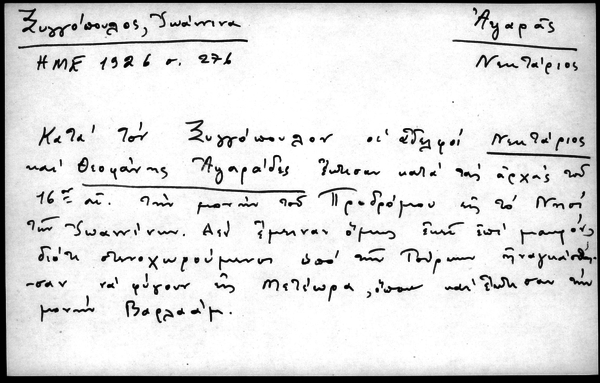 Ξυγγόπουλος, Ἰωάννινα
Ἀγαρᾶς
ΗΜΕ 1926 σ. 276
Νεκτάριος
Κατά τόν Ξυγγόπουλον οἱ ἀδελφοί Νεκτάριος
καί Θεοφάνης Ἀγαράδες ἔκτισαν κατά τάς ἀρχάς τοῦ
16ου αἰ. τήν μονήν τοῦ Προδρόμου εἰς τό Νησί
τῶν Ἰωαννίνων. Δέν ἔμειναν ὅμως ἐκεῖ ἐπί μακρόν,
διότι στενοχωρούμενοι ὑπό τῶν Τούρκων ἠναγκάσθη-
-σαν νά φύγουν εἰς Μετέωρα, ὅπου καί ἔκτισαν τήν
μονήν Βαρλαάμ.